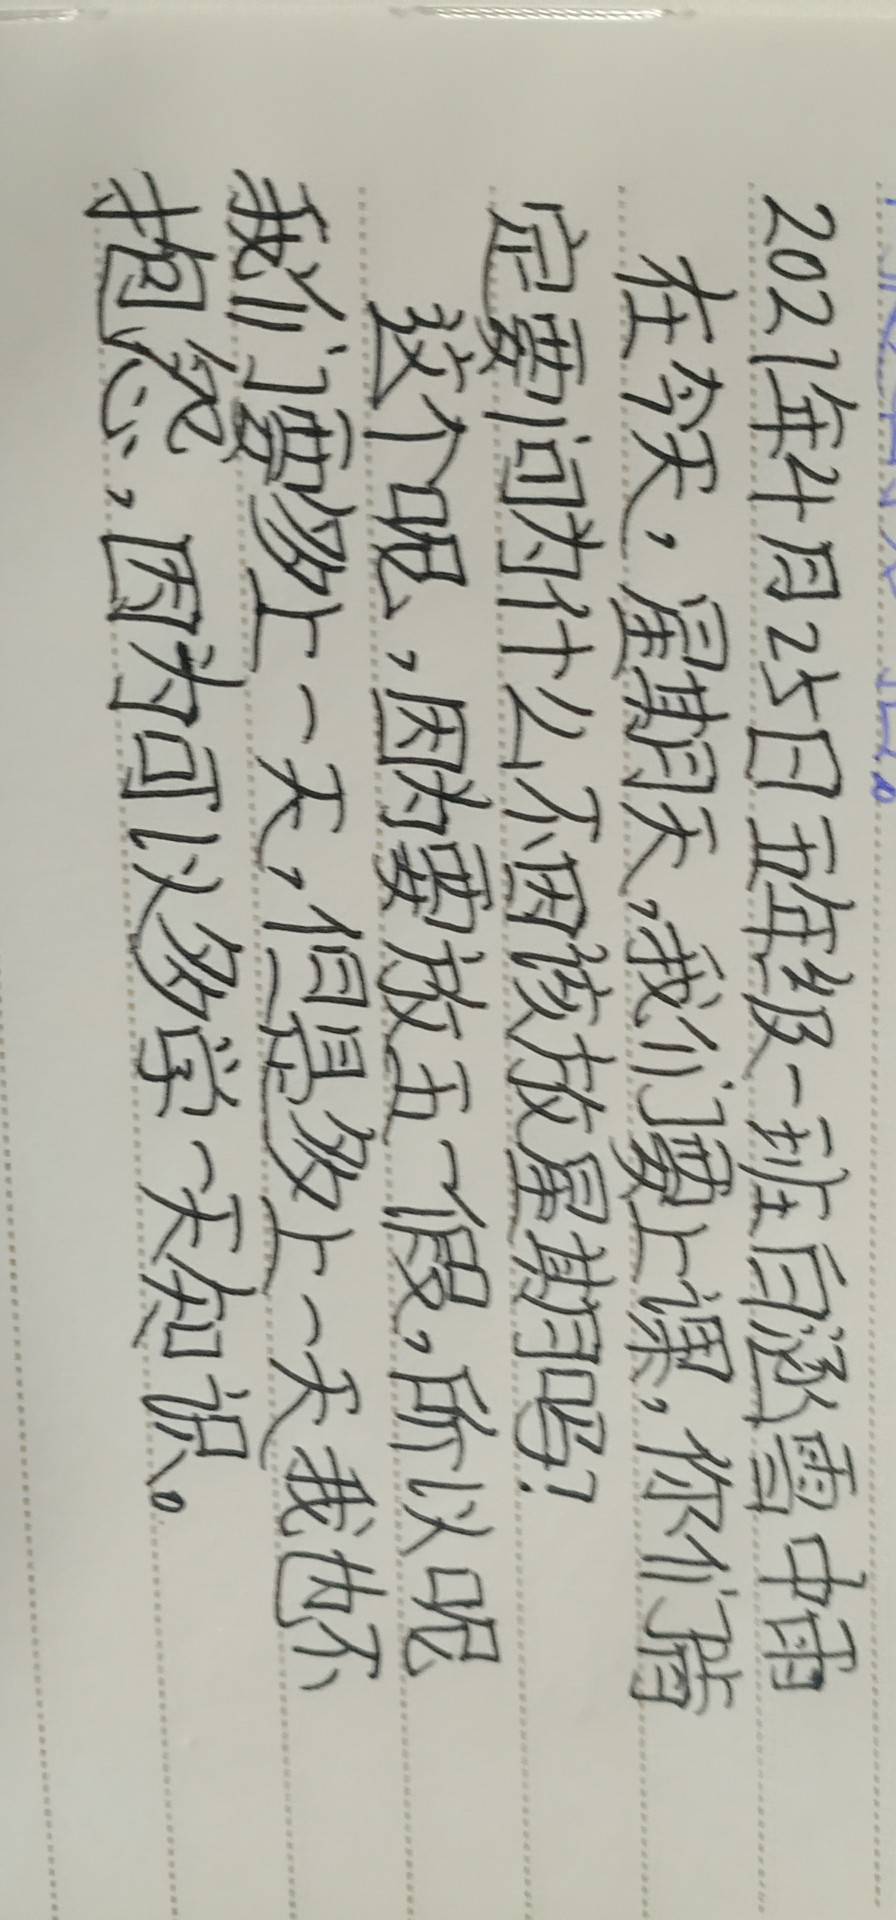 2021年4月25日五年级一班白涵雪 中雨
在今天，星期天，我们要上课，你们肯
定要问为什么不因该放星期吗？
这个呢，因为要放五一假，所以呢
我们要多上一天，但是多上一天我也不
抱怨，因为可以多学一天知识。